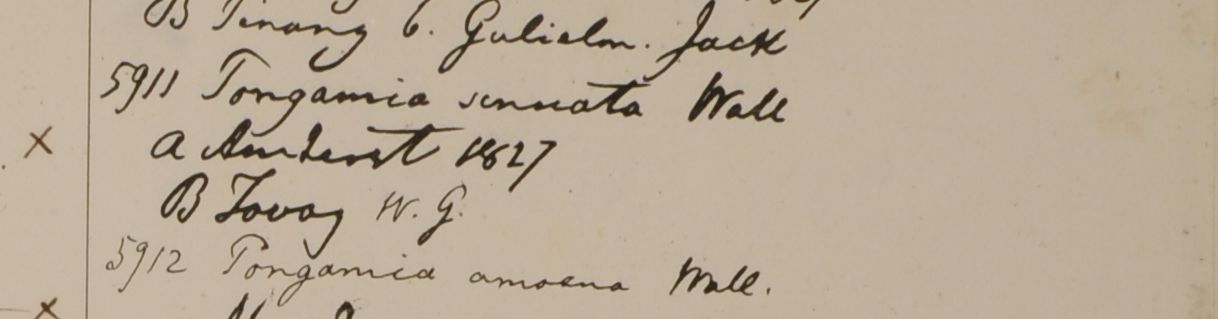 B Pinang b. Gulielm. Jack
5911 Pongamia sinuata Wall
× a Amherst 1827
B Tavoy W. G.
5912 Pongamia amoena Wall.
×